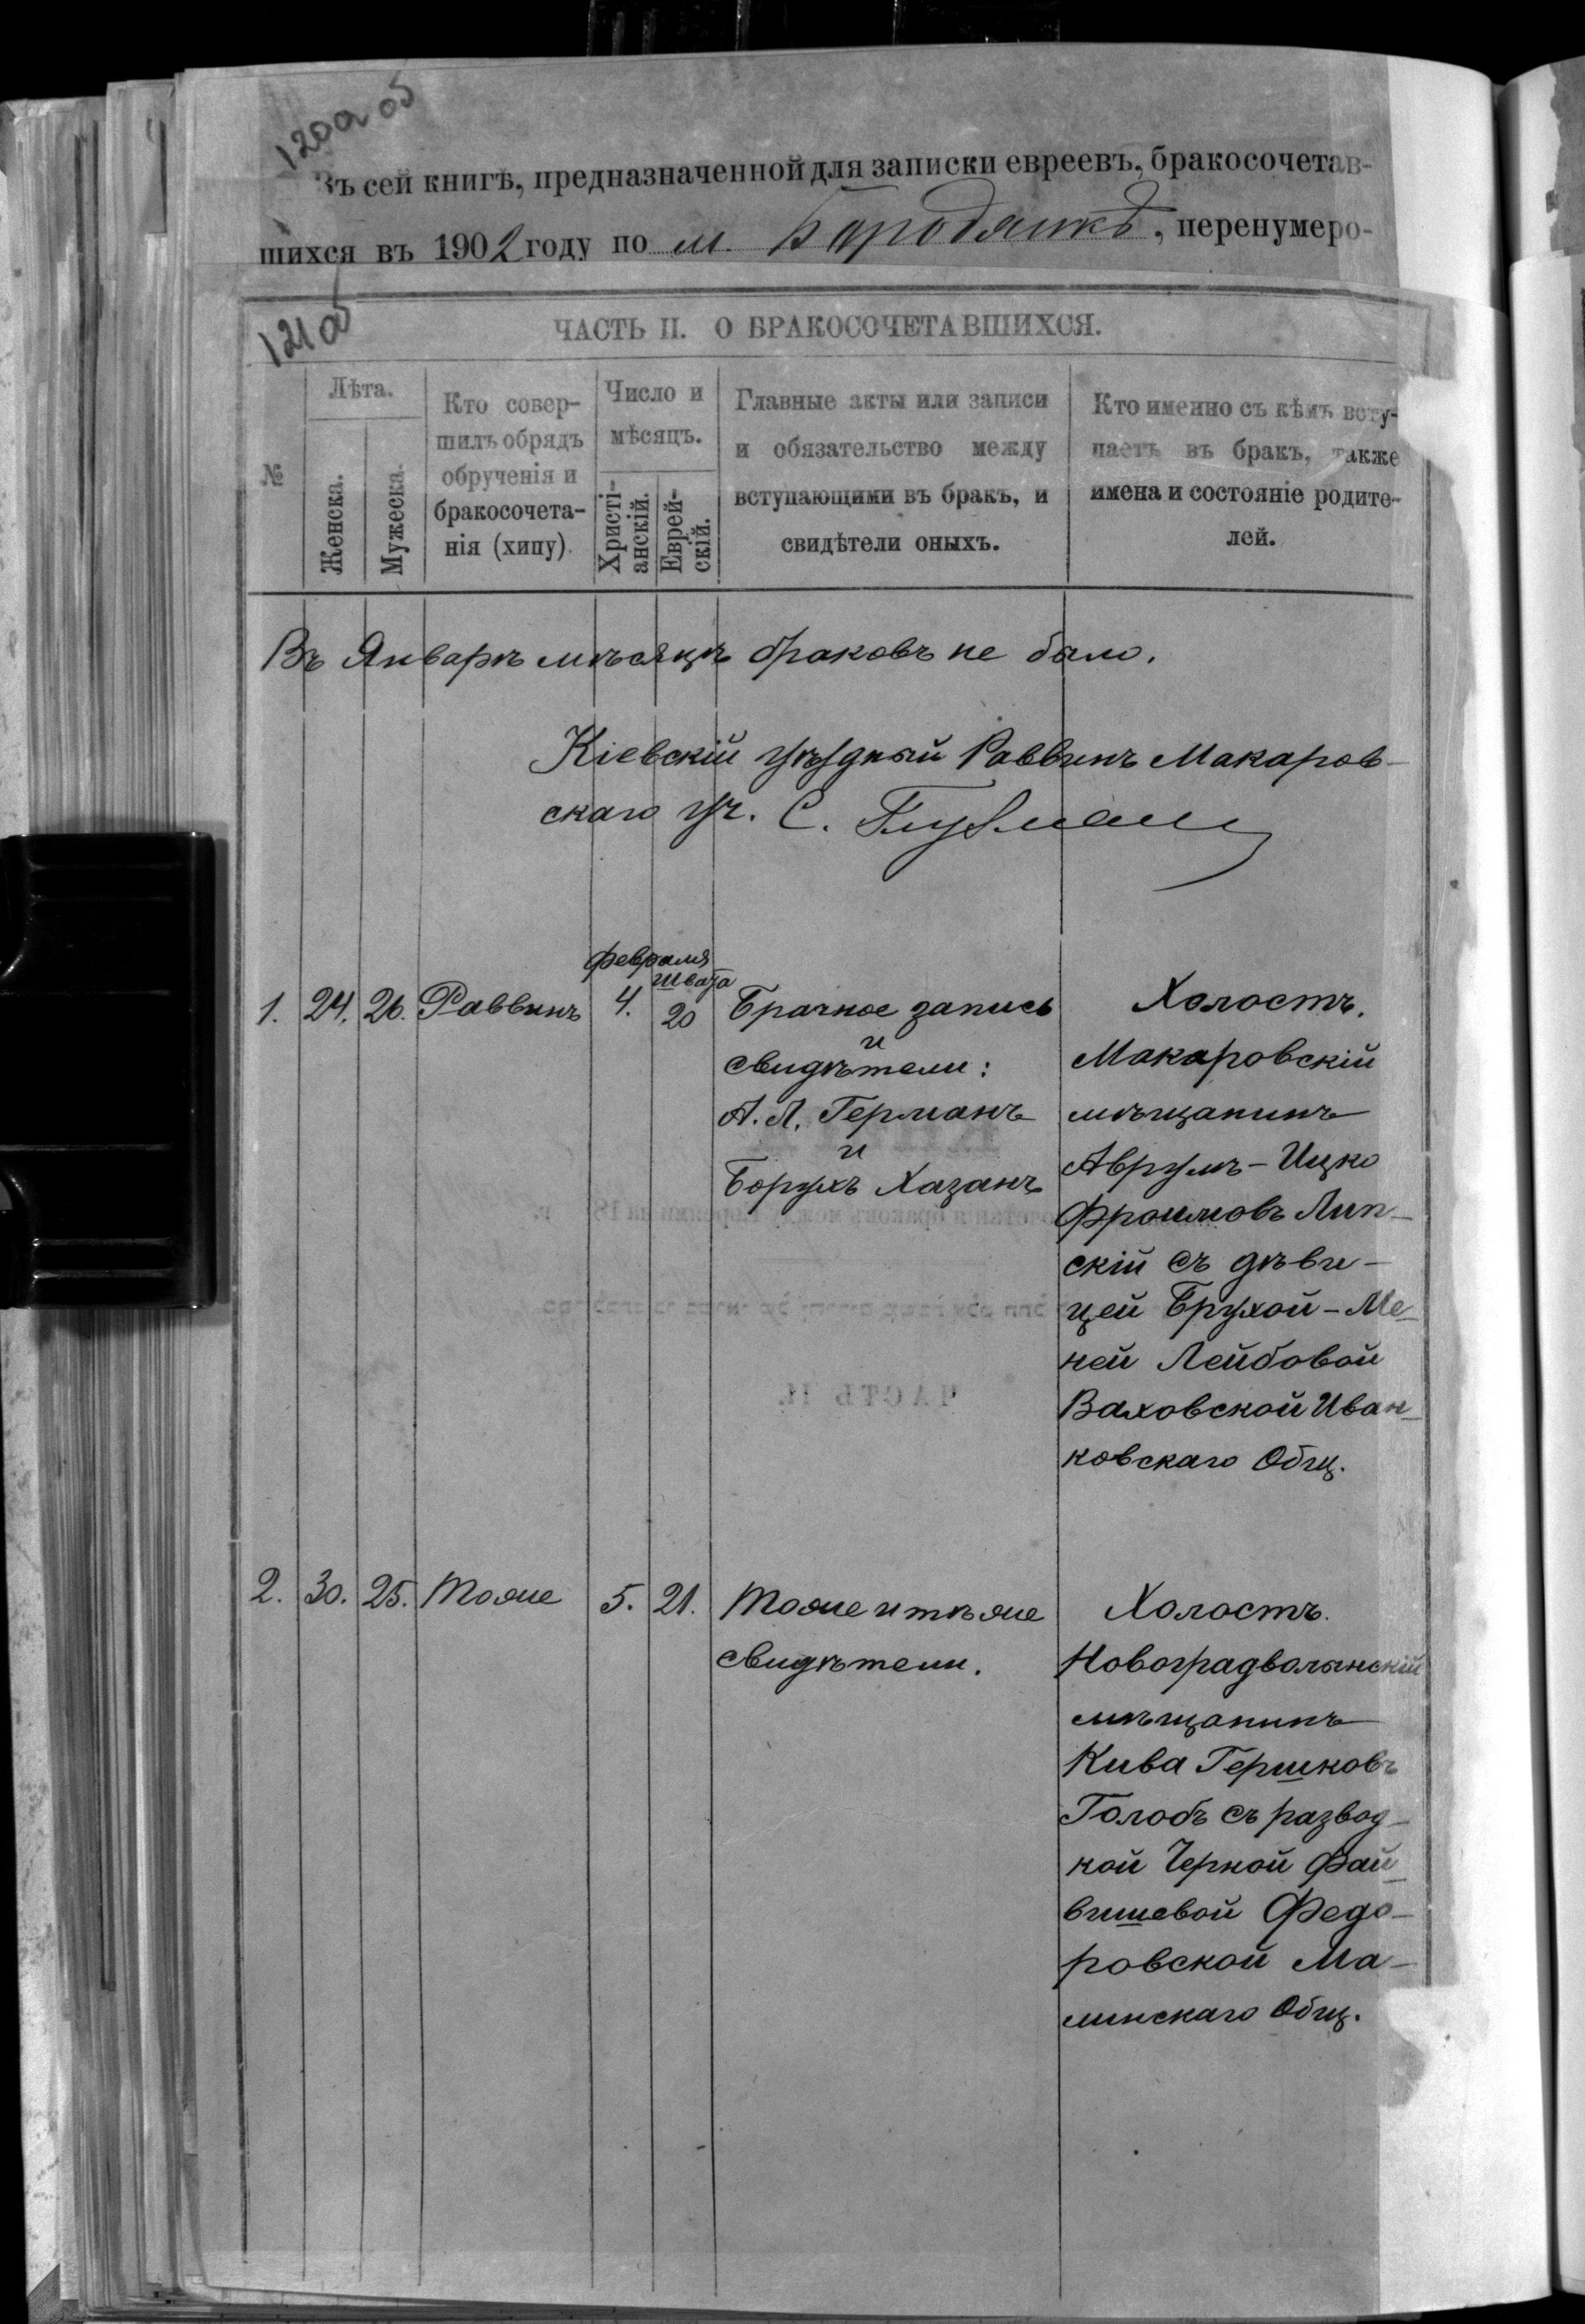 120а об
Въ сей книгѣ, предназначенной для записки евреевъ, бракосочетав-
шихся въ 1902 году по м. Бородянкѣ, перенумеро-
121 об
ЧАСТЬ II. О БРАКОСОЧЕТАВШИХСЯ.
№
Лѣта.
Женска.
Мужеска.
Кто совер-
шилъ обрядъ
обрученія и
бракосочета-
нія (хипу).
Число и
мѣсяцъ.
Христі-
анскій.
Еврей-
скій.
Главные акты или записи
и обязательство между
вступающими въ бракъ, и
свидѣтели оныхъ.
Кто именно съ кѣмъ всту-
паетъ въ бракъ, также
имена и состояніе родите-
лей.
Въ Январѣ мѣсяцѣ браковъ не было.
Кіевскій уѣздный Раввинъ Макаров-
скаго уч. С.
февраля
Швата
1. 24. 26. Раввинъ 4. 20
Брачное запись
и
свидѣтели:
А. Л. Германъ
и
Борухъ Хазанъ
Холостъ.
Макаровскій
мѣщанинъ
Аврумъ-Ицко
Фроимовъ Лип-
скій съ дѣви-
цей Брухой-Ме-
ней Лейбовой
Ваховской Иван-
ковскаго Общ.
2. 30. 25. Тоже 5. 21.
Тоже и тѣ же
свидѣтели.
Холостъ.
Новоградволынскій
мѣщанинъ
Кива Гершковъ
Голобъ съ развод-
кой Черной Фай-
вишевой Федо-
ровской Ма-
линскаго Общ.
ЧАСТЬ II.